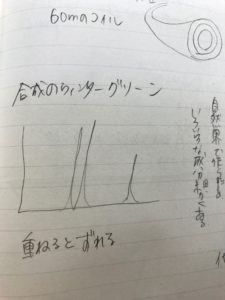 60mのコイル
合成のウィンターグリーン
自然界で作られる
いろいろな成分が
重ねるとずれる